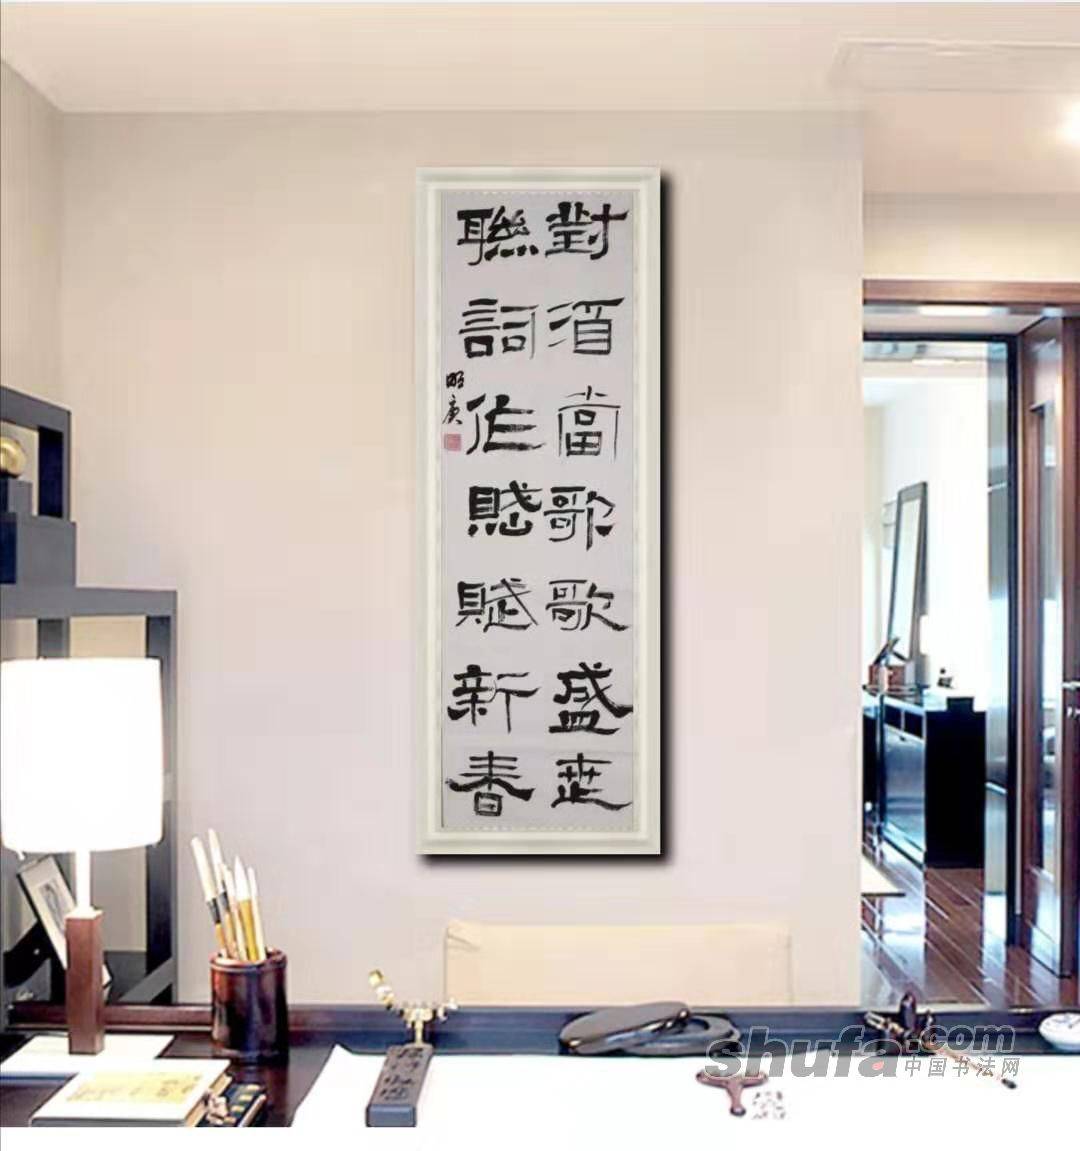 對酒當歌歌盛世
聯詞作賦賦新春
shufa.com
中国书法网